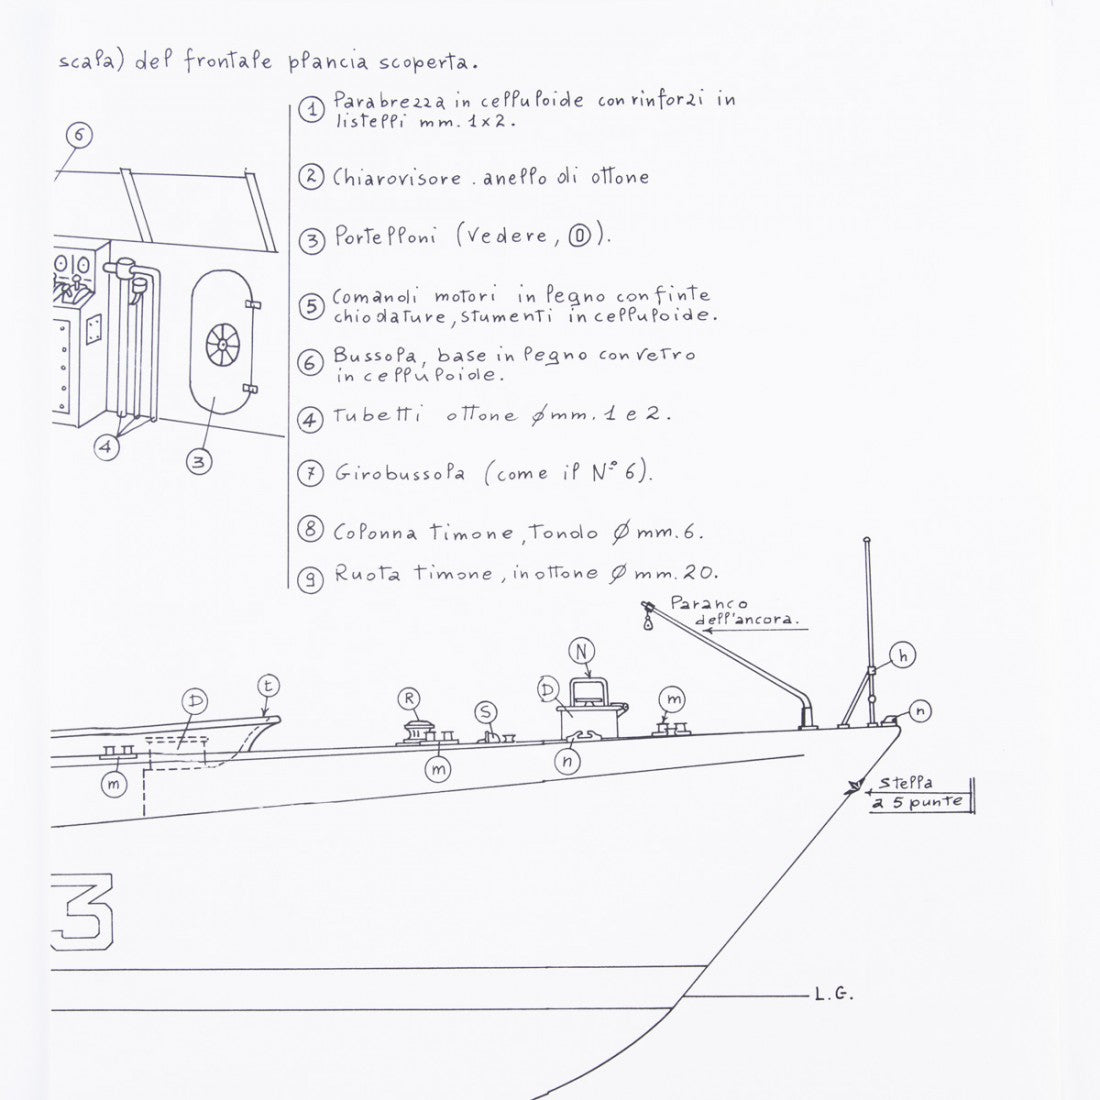 scala) del frontale plancia scoperta.
1 Parabrezza in celluloide con rinforzi in
listelli mm. 1x2.
2 Chiarovisore . anello di ottone
3 Portelloni (Vedere, O).
5 Comandi motori in legno con finte
chiodature, stumenti in celluloide.
6 Bussola, base in legno con vetro
in celluloide.
4 Tubetti ottone ø mm. 1 e 2.
7 Girobussola (come il N° 6).
8 Colonna timone, Tondo ø mm. 6.
9 Ruota timone, in ottone ø mm. 20.
6
4
3
Paranco
dell'ancora.
N
h
D
t
R
S
D
m
n
m
m
n
Stella
a 5 punte
3
L.G.